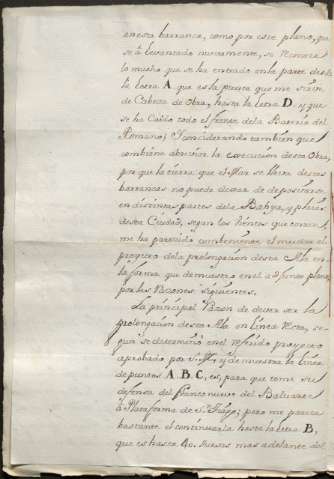 en esta barranca, como por este plano, que
se â levantado nuevamente, se
lo mucho que se ha entrado en la parte desde
la letra A que es la punta que me sirve
de Cabeza de obra, hasta la letra D, y que
se ha Caido todo el frente de la Barrera del
Romano; Y considerando tambien que
combiene abreviar la execucion desta Obra,
por que la tierra que el Mar se lleva destas
barrancas no puede dexar de depositarse,
en distintas partes de la Bahya, y
desta Ciudad, segun los Vientos que corren,
me ha parecido combeniente el
proyecto dela prolongacion desta Ala en
la forma que demuestro en el adjunto plano
por las Razones siguientes.
La principal Razon de dever ser la
prolongacion desta Ala en linea recta, se
gun se determinó en el referido proyecto
aprobado por S. M. y demuestra la linea
de puntos A B C, es, para que tome su
defensa del flanco nuevo del Baluarte
â Plataforma de Sn. Phelipe; pero me parece
bastante el continuarla hasta la letra B,
que es hasta 40. tuesas mas adelante del